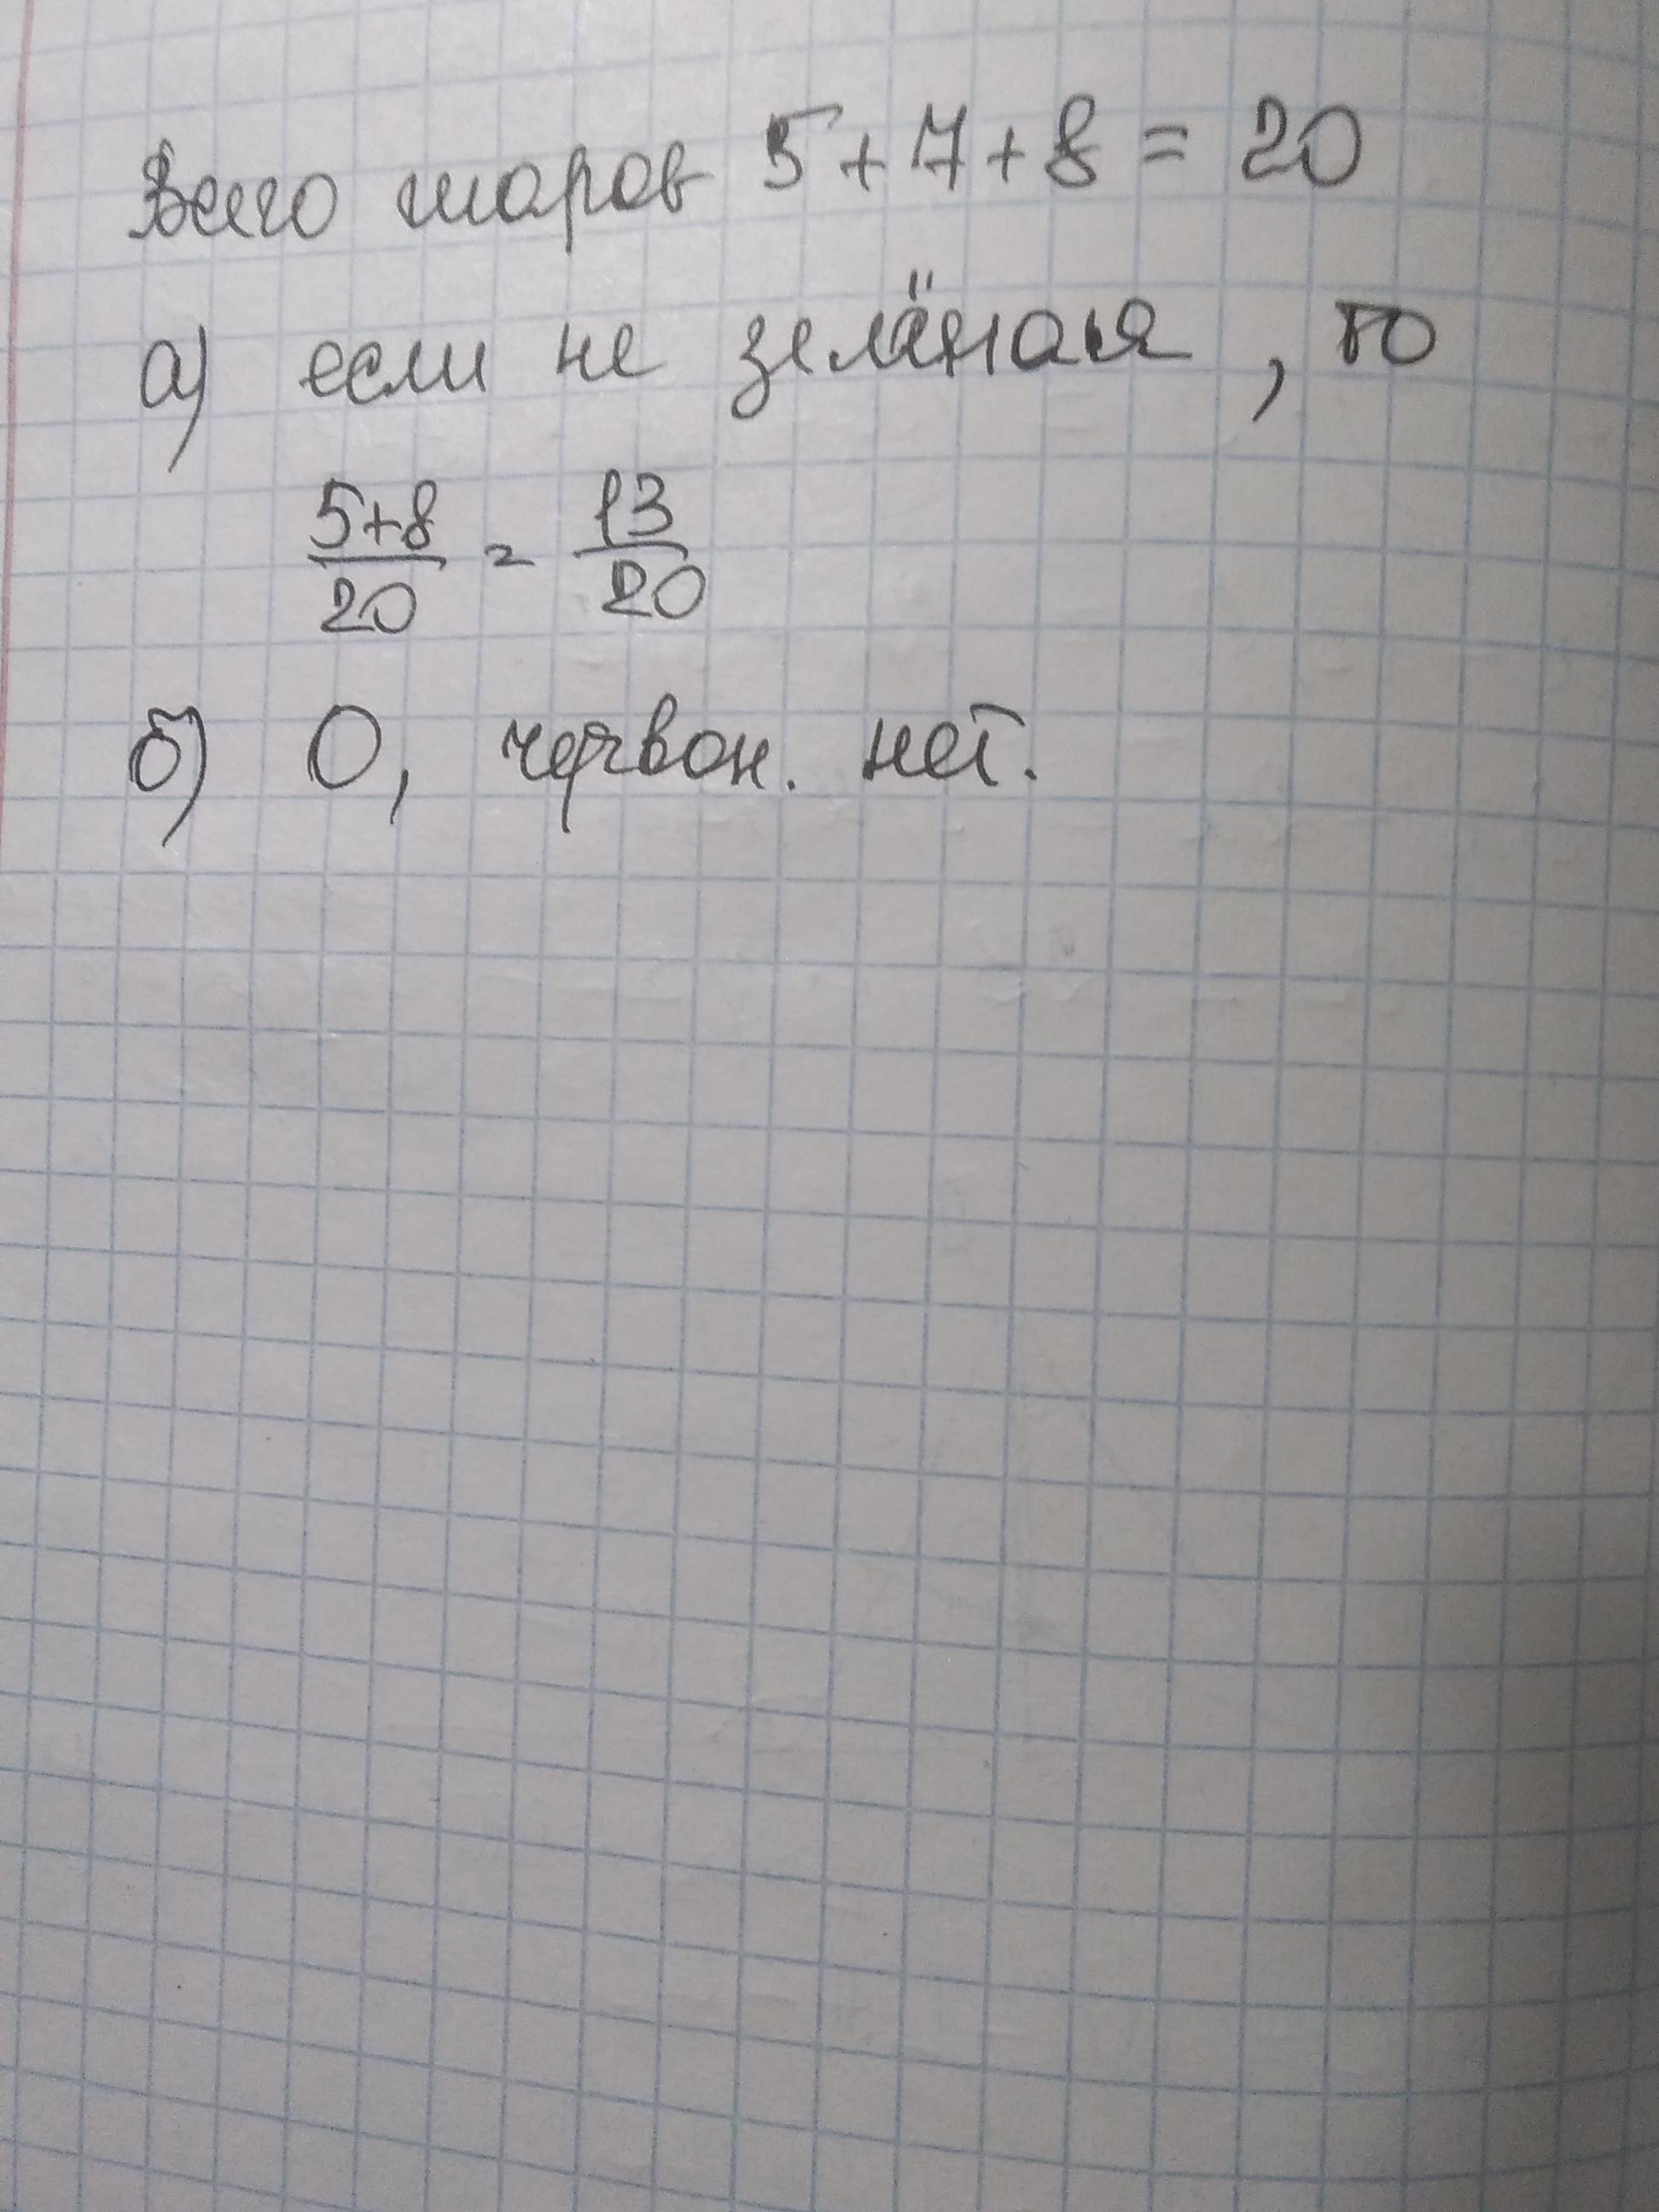 Всего шаров 5+7+8 = 20
а) если не зелёная, то
5+8/20 = 13/20
б) 0, червон. нет.